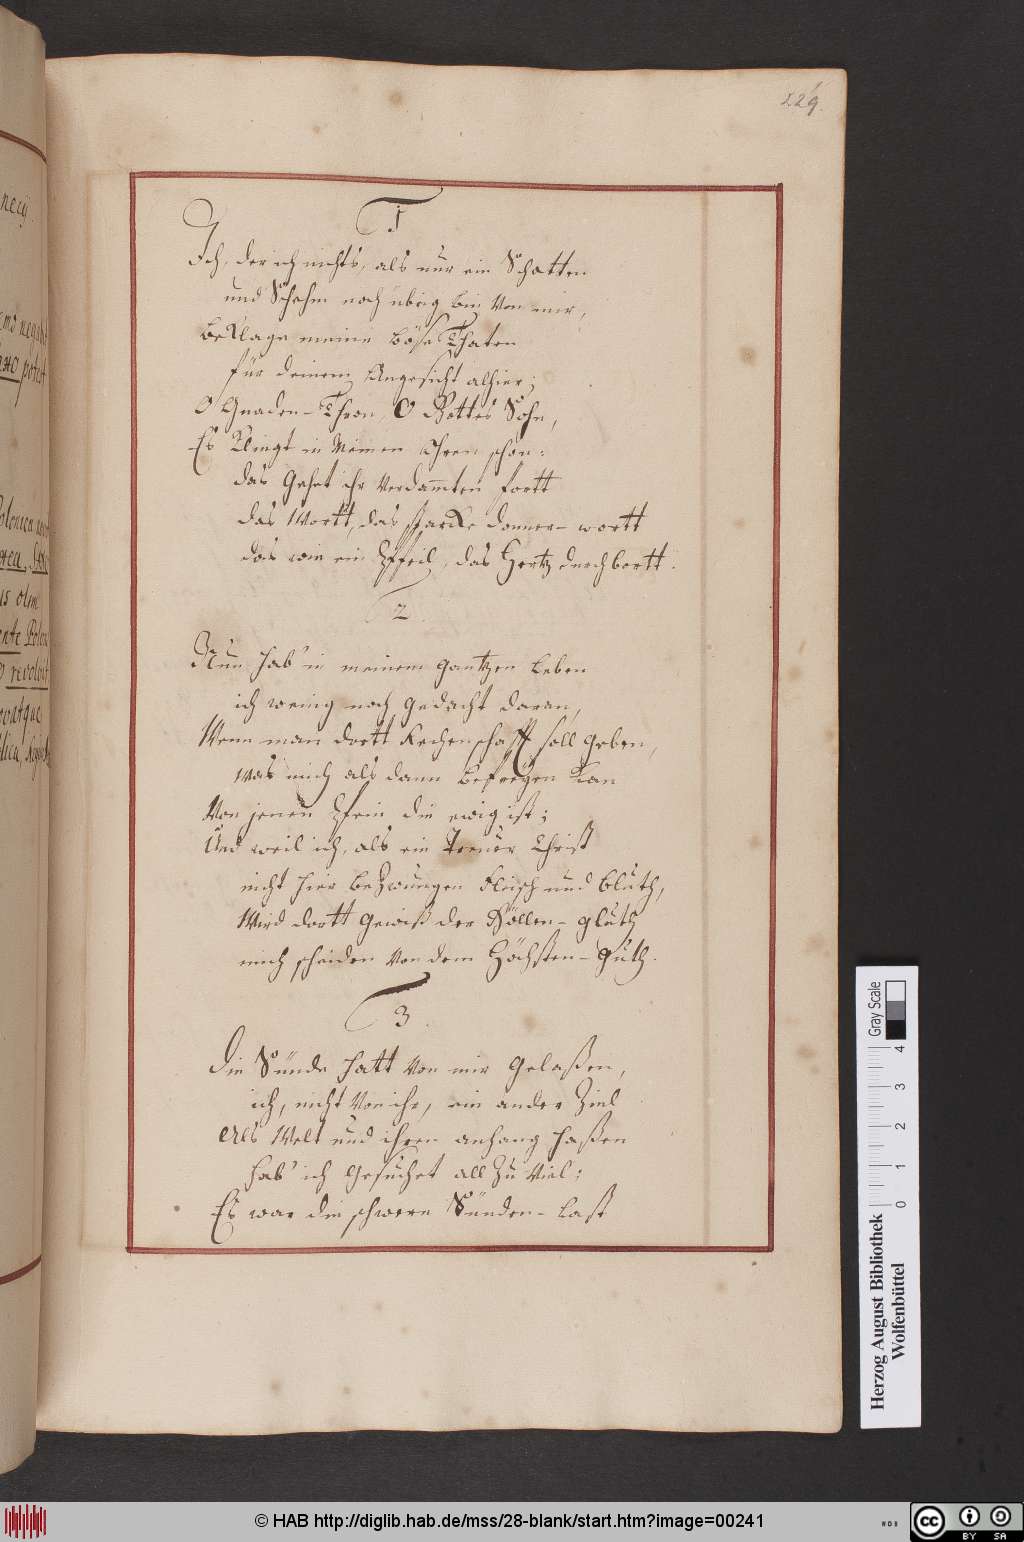 229.
1
Ich, der ich nichts, als nur ein Schatten
und Schehm noch übrig bin von mir,
beklage meine böse Thaten
für deinem Angesicht alhier;
O Gnaden-Thron, O Gottes Sohn,
Es klingt in Meinen Ohren schon:
das Gehet ihr verdam̄ten fortt
das Wortt, das starcke donner-wortt
das wie ein Pfeil, das Hertz durchbortt.
2.
Nun hab' in meinem gantzen Leben
ich wenig noch gedacht daran,
Wenn man dortt Rechenschafft soll geben,
Was mich als dann befreyen kan
Von jenen Pein die ewig ist;
Und weil ich, als ein treuer Christ
nicht hier bezwungen Fleisch und bluth,
Wird dortt gewiß der Höllen-gluth
mich scheiden von dem Höchsten-Guth.
3.
Die Sünde hatt von mir gelaßen,
ich, nicht von ihr, ein ander Ziel
Als Welt und ihren anhang haßen
hab' ich gesuchet all zu viel;
Es war die schwere Sünden-last
necij.
potest
us olim
Polon
revolvit
Gray Scale
0 1 2 3 4
Herzog August Bibliothek
Wolfenbüttel
© HAB http://diglib.hab.de/mss/28-blank/start.htm?image=00241
WDB
cc
BY SA